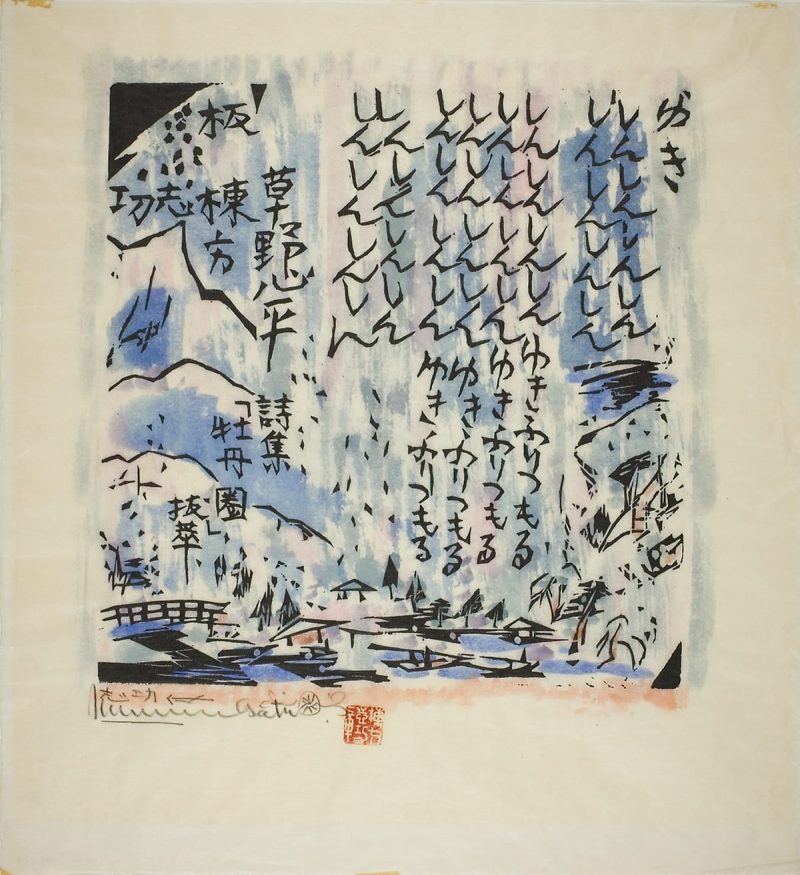 ゆき
しんしんしんしん
しんしんしんしん
しんしんしんしんゆきふりつもる
しんしんしんしんゆきふりつもる
しんしんしんしんゆきふりつもる
しんしんしんしんゆきふりつもる
しんしんしんしん
しんしんしんしん
草野心平
詩集
「牡丹圏」
抜萃
板 棟方
志功